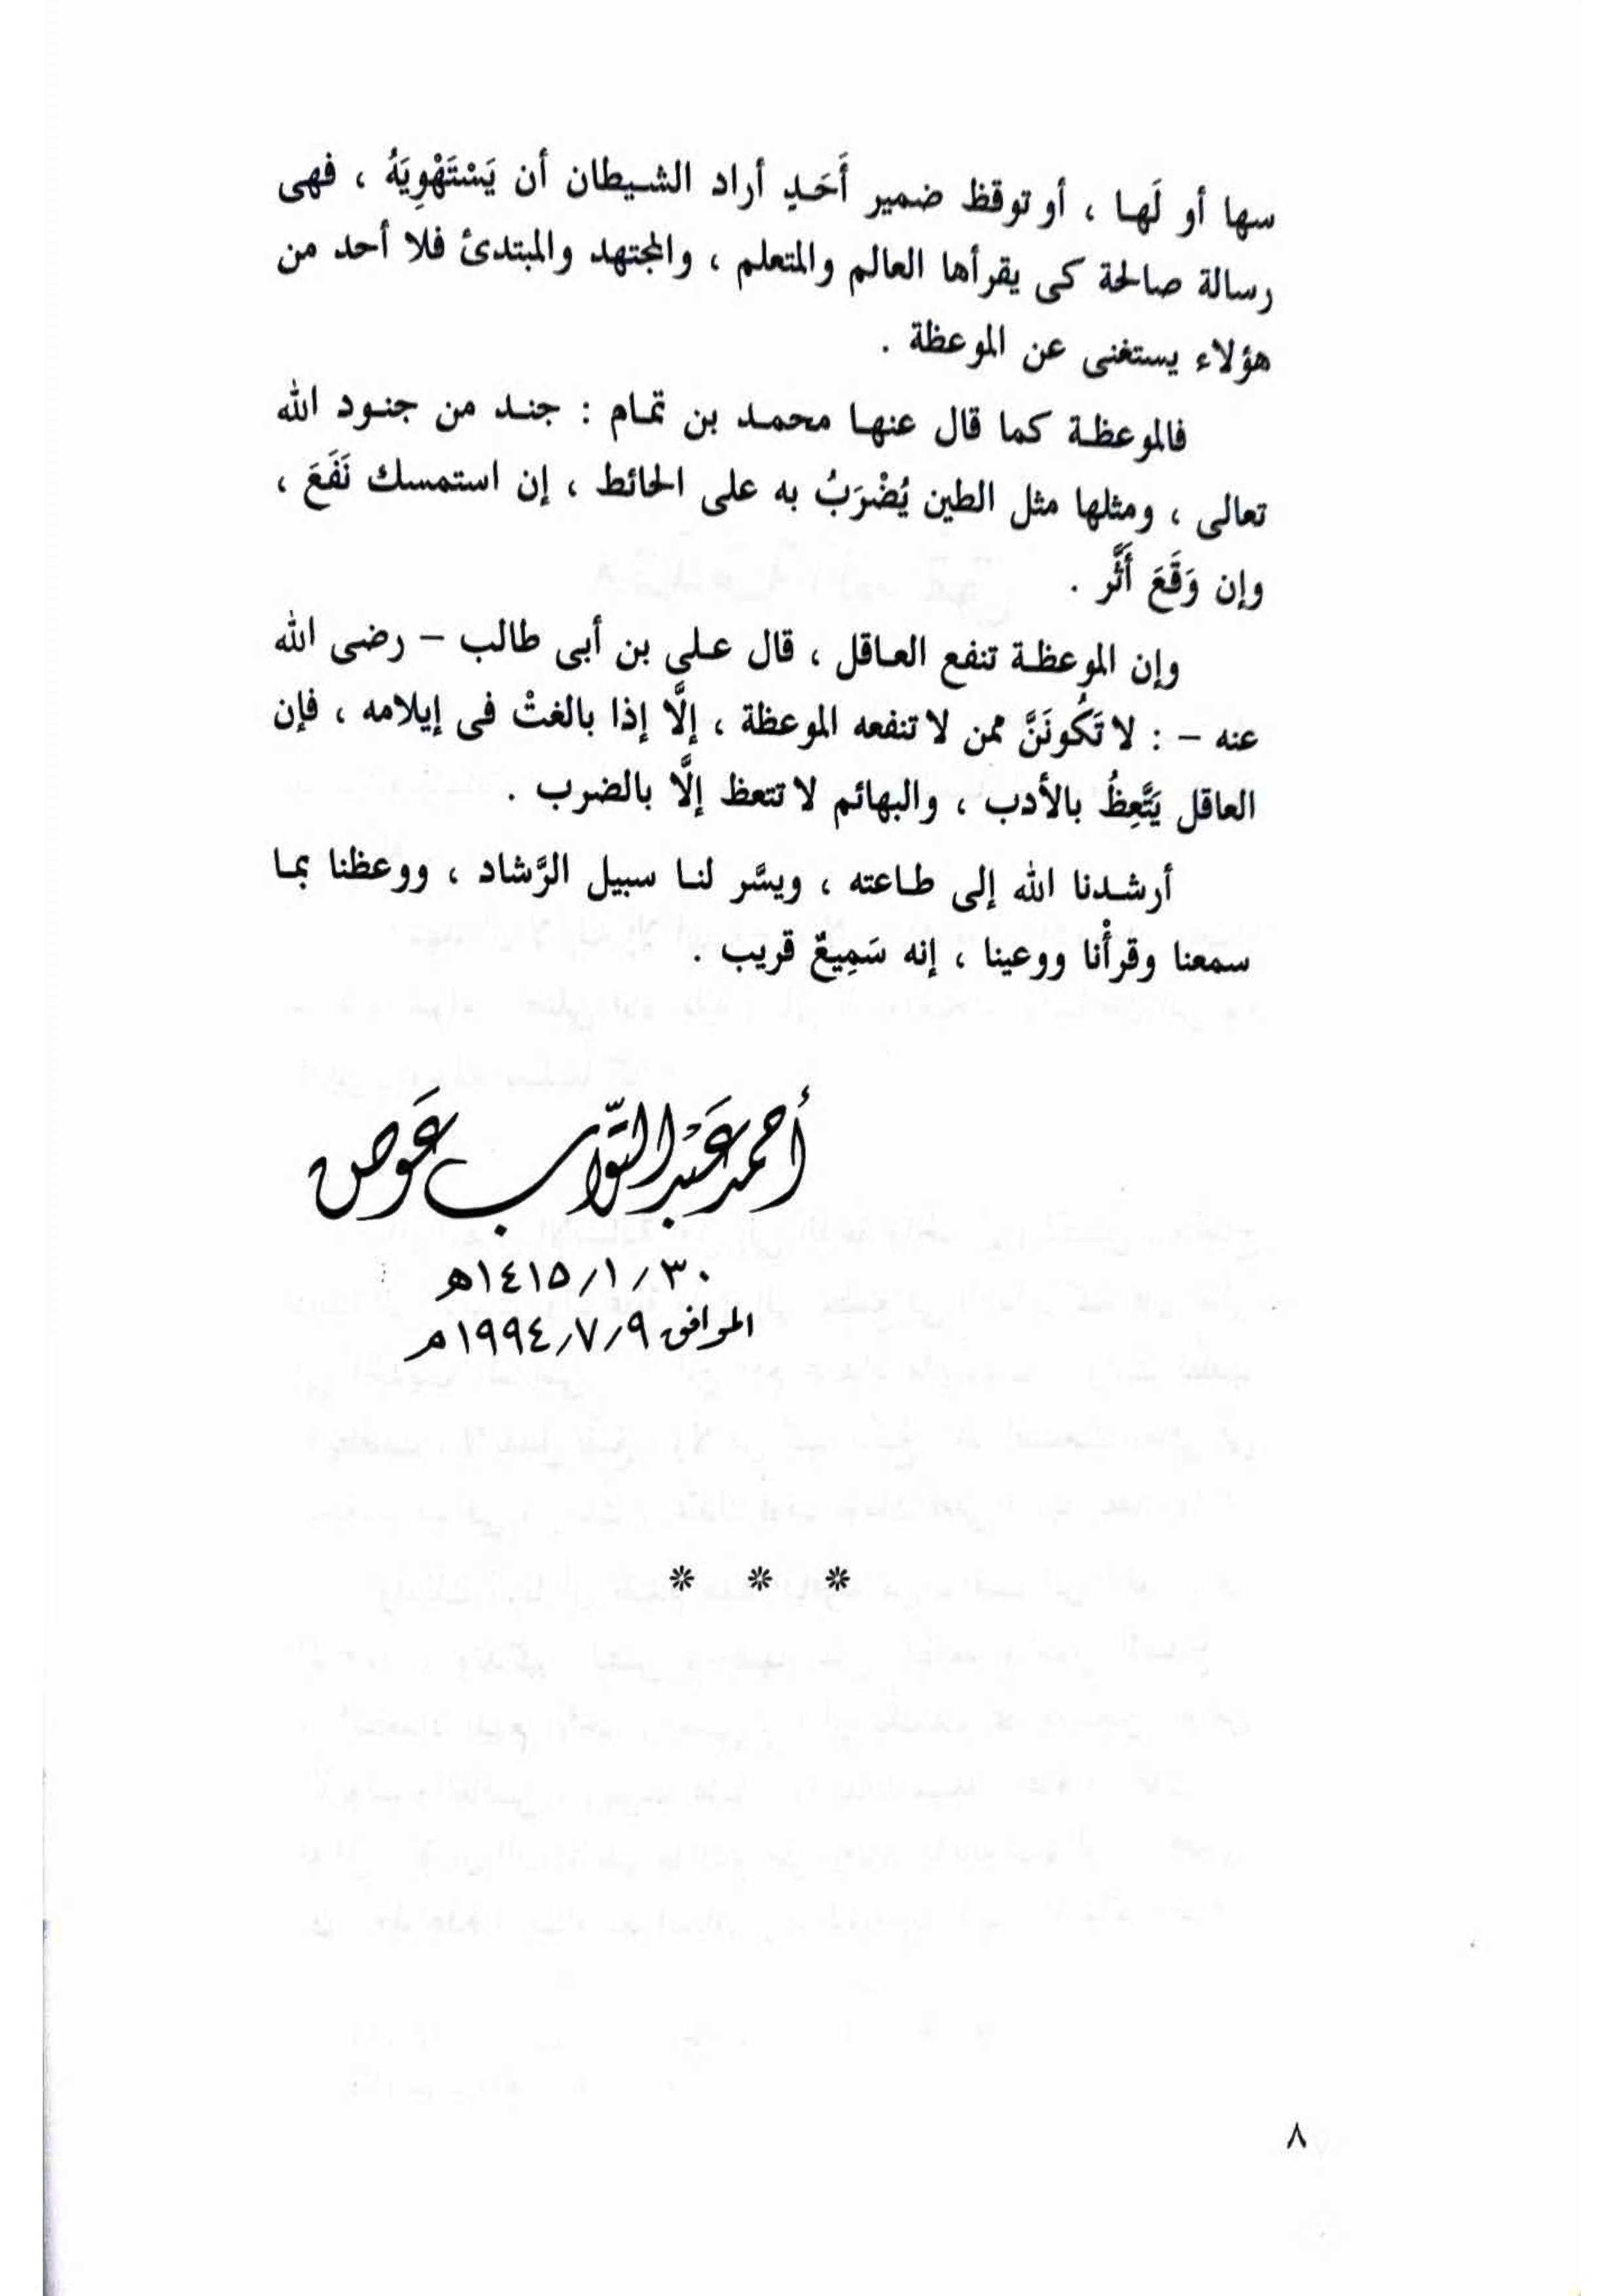 سها أو لَها ، أو توقظ ضمير أَحَدٍ أراد الشيطان أن يَسْتَهْوِيَهُ ، فهى
رسالة صالحة كى يقرأها العالم والمتعلم ، والمجتهد والمبتدئ فلا أحد من
هؤلاء يستغنى عن الموعظة .
فالموعظة كما قال عنها محمد بن تمام : جند من جنود الله
تعالى ، ومثلها مثل الطين يُضْرَبُ به على الحائط ، إن استمسك نَفَعَ ،
وإن وَقَعَ أَثَّر .
وإن الموعظة تنفع العاقل ، قال على بن أبى طالب – رضى الله
عنه – : لا تَكُونَنَّ ممن لا تنفعه الموعظة ، إلَّا إذا بالغتْ فى إيلامه ، فإن
العاقل يَتَّعِظُ بالأدب ، والبهائم لا تتعظ إلَّا بالضرب .
أرشدنا الله إلى طاعته ، ويسَّر لنا سبيل الرَّشاد ، ووعظنا بما
سمعنا وقرأْنا ووعينا ، إنه سَمِيعٌ قريب .
أحمد عَبْد التَّوّاب عَوض
٣٠/١/١٤١٥هـ
الموافق ٩/٧/١٩٩٤م
* * *
٨